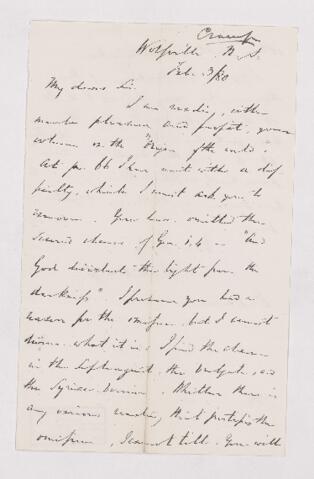 Wolfville N.S.
Feb. 3/80
My dear Sir.
I am reading, with
much pleasure and profit, your
volume on the "Origin of the world".
At p. 66 I have met with a dif
ficulty, which I must ask you to
remove. You have omitted the
second clause of Gen. 1, 4 — "And
God divided the light from the
darkness" I presume you had a
reason for the omission, but I cannot
divine what it is. I find the clause
in the Septuagint, the Vulgate, and
the Syriac version. Whether there is
any various reading that justifies the
omission, I cannot tell. You will